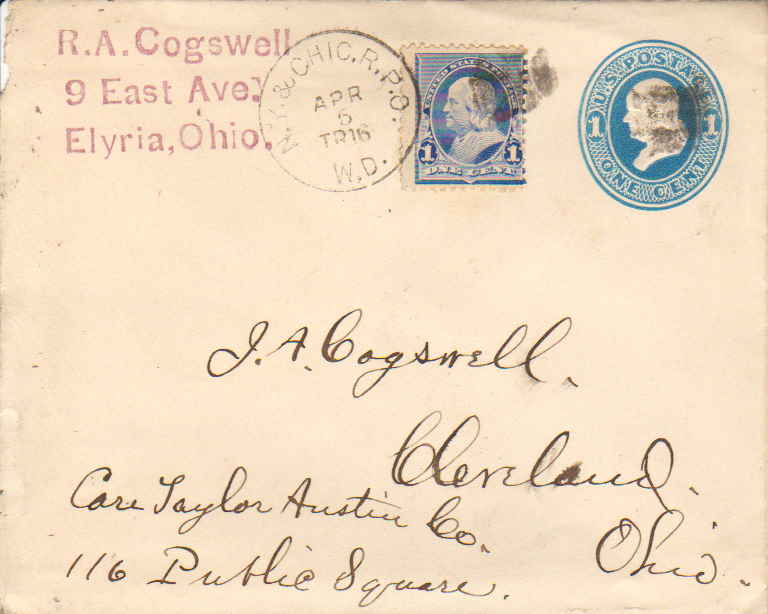 R.A. Cogswell
9 East Ave.
Elyria, Ohio.
N.Y. & CHIC. R.P.O.
APR
6
TR16
W.D.
1 1
ONE CENT
U.S. POSTAGE
1 1
ONE CENT
J. A. Cogswell.
Cleveland.
Ohio.
Care Taylor Austin Co.
116 Public Square.